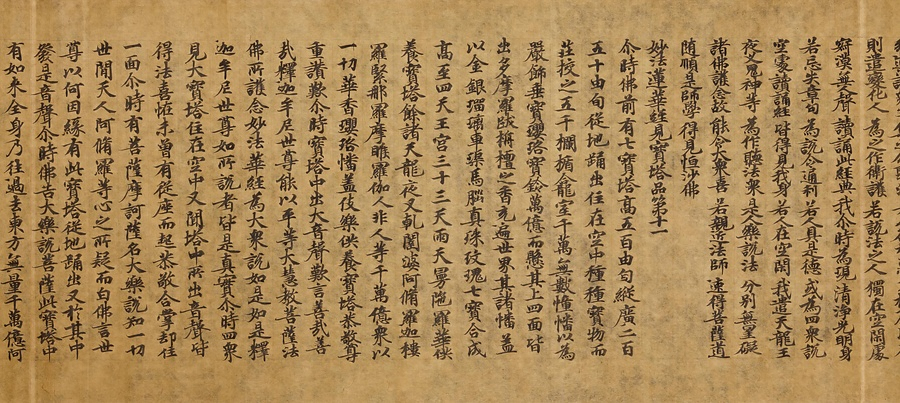 則遣變化人　為之作衛護　若說法之人　獨在空閑處
寂漠無人聲　讀誦此經典　我尒時為現　清浄光明身
若忘失章句　為說令通利　若人具是德　或為四衆說
空處讀誦經　皆得見我身　若人在空閑　我遣天龍王
夜叉鬼神等　為作聽法衆　是人樂說法　分別無罣礙
諸佛護念故　能令大衆喜　若親近法師　速得菩薩道
随順是師學　得見恒沙佛
妙法蓮華經見寶塔品第十一
尒時佛前有七寶塔高五百由旬縱廣二百
五十由旬從地踊出住在空中種種寶物而
莊挍之五千欄楯龕室千萬無數幢幡以為
嚴飾垂寶瓔珞寶鈴萬億而懸其上四面皆
出多摩羅跋栴檀之香充遍世界其諸幡盖
以金銀瑠璃車璖馬腦真珠玫瑰七寶合成
高至四天王宮三十三天雨天曼陁羅華供
養寶塔餘諸天龍夜叉乾闥婆阿脩羅迦樓
羅緊那羅摩睺羅伽人非人等千萬億衆以
一切華香瓔珞幡盖伎樂供養寶塔恭敬尊
重讃歎尒時寶塔中出大音聲歎言善㢤善
㢤釋迦牟尼世尊能以平等大慧教菩薩法
佛所護念妙法華經為大衆說如是如是釋
迦牟尼世尊如所說者皆是真實尒時四衆
見大寶塔住在空中又聞塔中所出音聲皆
得法喜恠未曾有從座而起恭敬合掌却住
一面尒時有菩薩摩訶薩名大樂說知一切
世間天人阿脩羅等心之所疑而白佛言世
尊以何因緣有此寶塔從地踊出又於其中
發是音聲尒時佛告大樂說菩薩此寶塔中
有如来全身乃往過去東方無量千萬億阿